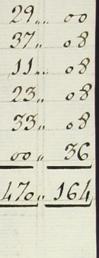 29 " 00
37 " 08
11 " 08
23 " 08
33 " 08
00 " 36
470 " 164